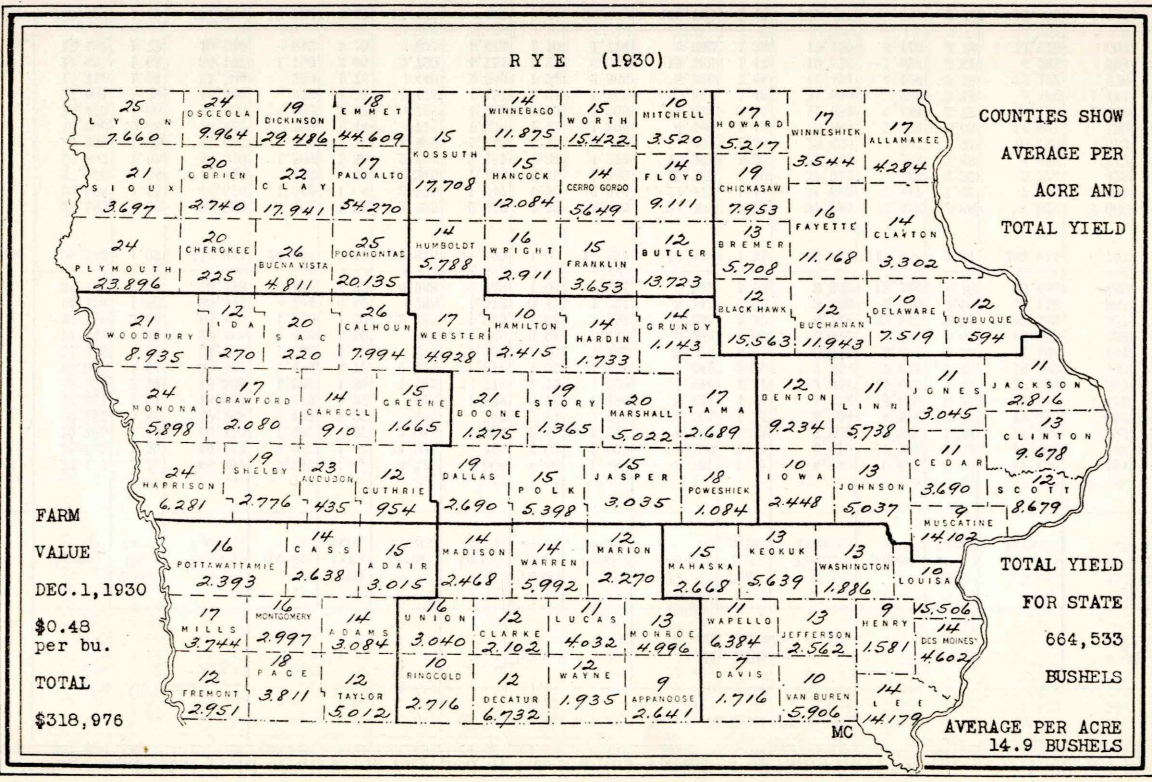 RYE (1930)
COUNTIES SHOW
AVERAGE PER
ACRE AND
TOTAL YIELD
25
LYON
7.660
24
OSCEOLA
9.964
19
DICKINSON
29.486
18
EMMET
44.609
15
KOSSUTH
17,708
14
WINNEBAGO
11.875
15
WORTH
15.422
10
MITCHELL
3.520
17
HOWARD
5.217
17
WINNESHIEK
3.544
17
ALLAMAKEE
4.284
21
SIOUX
3.697
20
O'BRIEN
2.740
22
CLAY
17.941
17
PALO ALTO
54.270
15
HANCOCK
12.084
14
CERRO GORDO
5649
14
FLOYD
9.111
19
CHICKASAW
7.953
16
FAYETTE
11.168
14
CLAYTON
3.302
24
PLYMOUTH
23.896
20
CHEROKEE
225
26
BUENA VISTA
4.811
25
POCAHONTAS
20.135
14
HUMBOLDT
5.788
16
WRIGHT
2.911
15
FRANKLIN
3.653
12
BUTLER
13.723
13
BREMER
5.708
21
WOODBURY
8.935
12
IDA
270
20
SAC
220
26
CALHOUN
7.994
17
WEBSTER
4.928
10
HAMILTON
2.415
14
HARDIN
1.733
14
GRUNDY
1.143
12
BLACK HAWK
15.563
12
BUCHANAN
11.943
10
DELAWARE
7.519
12
DUBUQUE
594
24
MONONA
5,898
17
CRAWFORD
2.080
14
CARROLL
910
15
GREENE
1.665
21
BOONE
1.275
19
STORY
1.365
20
MARSHALL
5.022
17
TAMA
2.689
12
BENTON
9.234
11
LINN
5,738
11
JONES
3.045
11
JACKSON
2.816
13
CLINTON
9.678
24
HARRISON
6.281
19
SHELBY
2.776
23
AUDUBON
435
12
GUTHRIE
954
19
DALLAS
2.690
15
POLK
5.398
15
JASPER
3.035
18
POWESHIEK
1.084
10
IOWA
2.448
13
JOHNSON
5,037
11
CEDAR
3.690
12
SCOTT
8.679
9
MUSCATINE
14.102
16
POTTAWATTAMIE
2.393
14
CASS
2.638
15
ADAIR
3.015
14
MADISON
2.468
14
WARREN
5.992
12
MARION
2.270
15
MAHASKA
2.668
13
KEOKUK
5.639
13
WASHINGTON
1.886
10
LOUISA
15,506
17
MILLS
3.744
16
MONTGOMERY
2.997
14
ADAMS
3.084
16
UNION
3.040
12
CLARKE
2.102
11
LUCAS
4.032
13
MONROE
4.996
11
WAPELLO
6.384
13
JEFFERSON
2.562
9
HENRY
1.581
14
DES MOINES
4.602
12
FREMONT
2.951
18
PAGE
3.811
12
TAYLOR
5.012
10
RINGGOLD
2.716
12
DECATUR
6.732
12
WAYNE
1.935
9
APPANOOSE
2.641
7
DAVIS
1.716
10
VAN BUREN
5.906
14
LEE
14.179
MC
FARM
VALUE
DEC.1,1930
$0.48
per bu.
TOTAL
$318,976
TOTAL YIELD
FOR STATE
664,533
BUSHELS
AVERAGE PER ACRE
14.9 BUSHELS